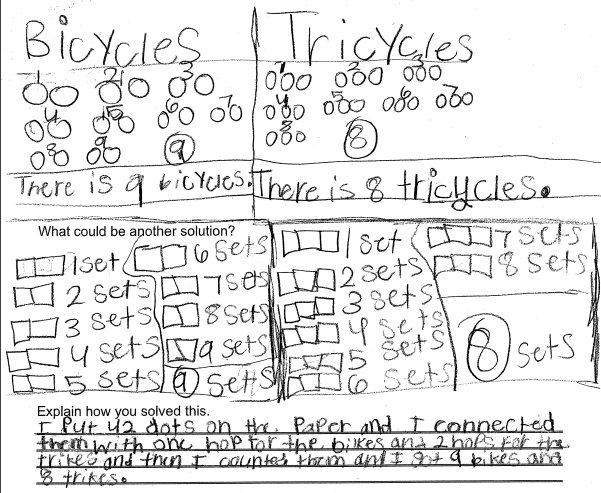 Bicycles
Tricycles
1 2 3
4 5 6 7
8 9
9
1 2 3
4 5 6 7
8
8
There is 9 bicycles.
There is 8 tricycles.
What could be apnother solution?
1 set
2 sets
3 sets
4 sets
5 sets
6 sets
7 sets
8 sets
9 sets
9 sets
1 set
2 sets
3 sets
4 sets
5 sets
6 sets
7 sets
8 sets
8 sets
Explain how you solved this.
I Put 42 dots on the Paper and I connected
them with one hop for the bikes and 2 hops for the
trikes and then I counted them and I got 9 bikes and
8 trikes.